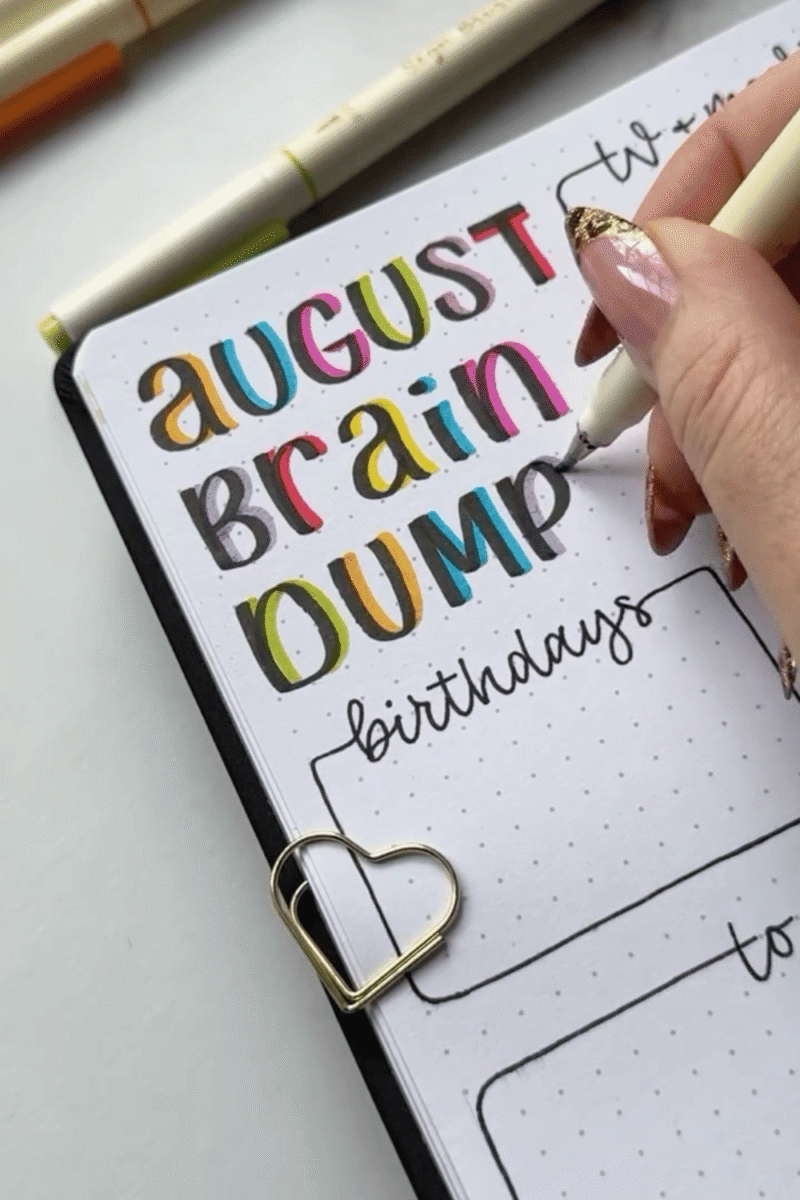 AUGUST
BraiN
DUMP
birthdays
to